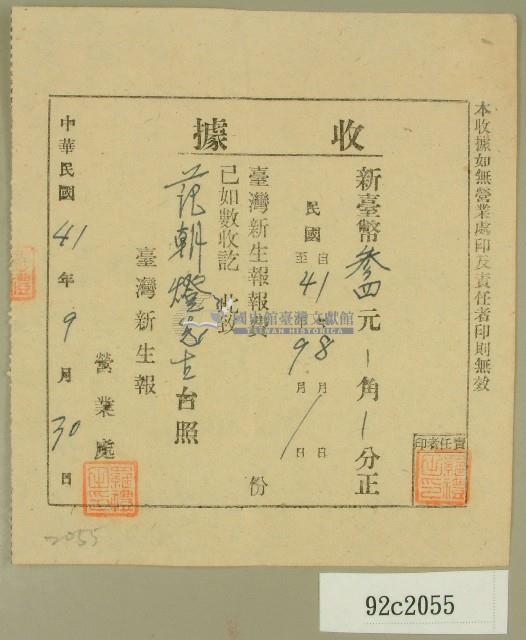 本收據如無營業處印及責任者印則無效
收據
新臺幣叁四元 角 分正
責任者印
民國 自 至 41年 8 9 月 1 日
臺灣新生報報費 份
已如數收訖 此致
范朝燈先生台照
臺灣新生報
營業處
中華民國41年9月30日
國史館臺灣文獻館
TAIWAN HISTORICA
2055
92c2055